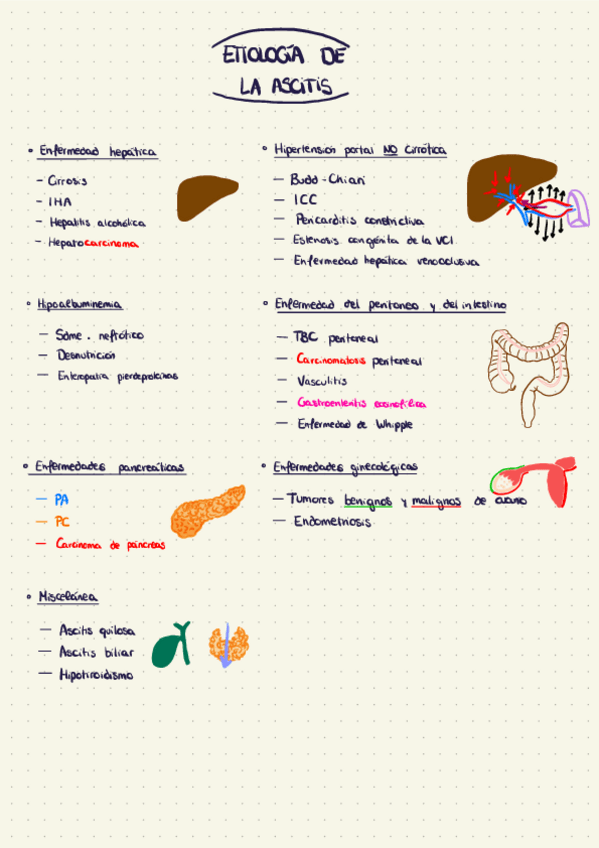 ETIOLOGÍA DE
LA ASCITIS
• Enfermedad hepática
- Cirrosis
- IHA
- Hepatitis alcohólica
- Hepatocarcinoma
• Hipertensión portal NO cirrótica
- Budd-Chiari
- ICC
- Pericarditis constrictiva
- Estenosis congénita de la VCI
- Enfermedad hepática venooclusiva
• Hipoalbuminemia
- Sdme. nefrótico
- Desnutrición
- Enteropatía pierdeproteínas
• Enfermedad del peritoneo y del intestino
- TBC peritoneal
- Carcinomatosis peritoneal
- Vasculitis
- Gastroenteritis eosinofílica
- Enfermedad de Whipple
• Enfermedades pancreáticas
- PA
- PC
- Carcinoma de páncreas
• Enfermedades ginecológicas
- Tumores benignos y malignos de ovario
- Endometriosis
• Miscelánea
- Ascitis quilosa
- Ascitis biliar
- Hipotiroidismo